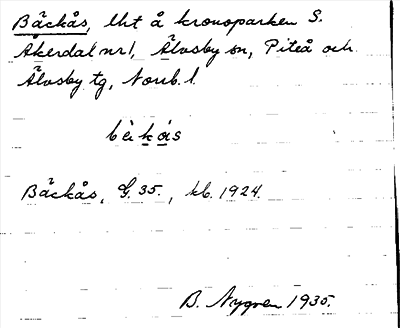 Bäckås, lht å kronoparken S.
Åkerdal nr1, Älvsby sn, Piteå och
Älvsby tg, Norrb. l.
bèkås
Bäckås, G. 35., kb. 1924.
B. Nygren 1935.